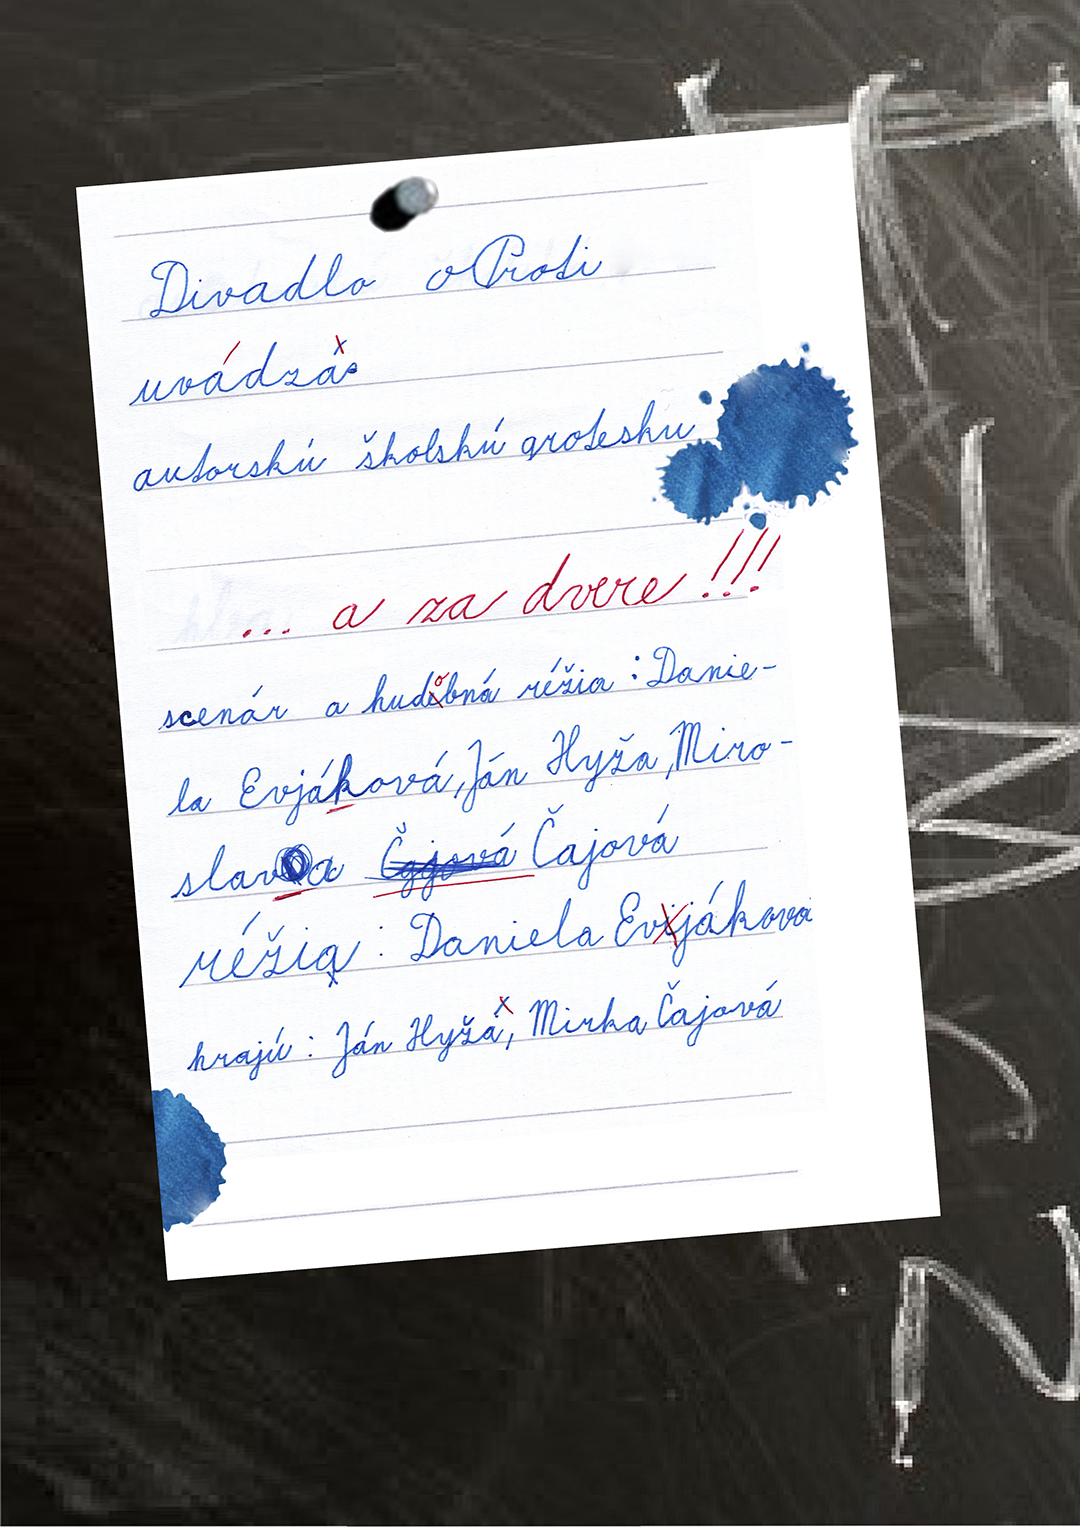 Divadlo oProti
uvádzá
autorskú školskú grotesku
... a za dvere !!!
scenár a hudobná réžia : Danie-
la Evjáková, Ján Hyža, Miro-
slava Čajová
réžia : Daniela Evijáková
hrajú : Ján Hyžá, Mirka Čajová